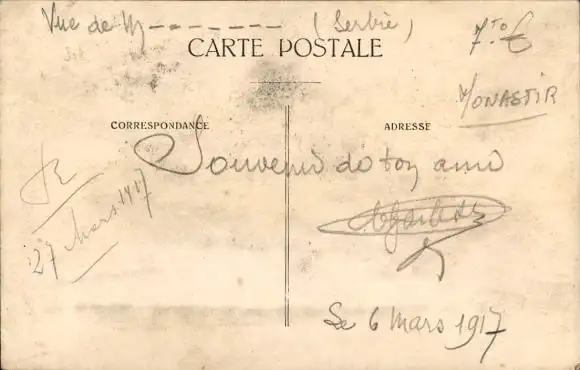 Vue de M- - - - - - - - (Serbie)
7.to €
CARTE POSTALE
MONASTIR
CORRESPONDANCE
ADRESSE
Souvenir de ton ami
R
27 Mars 1917
Le 6 Mars 1917